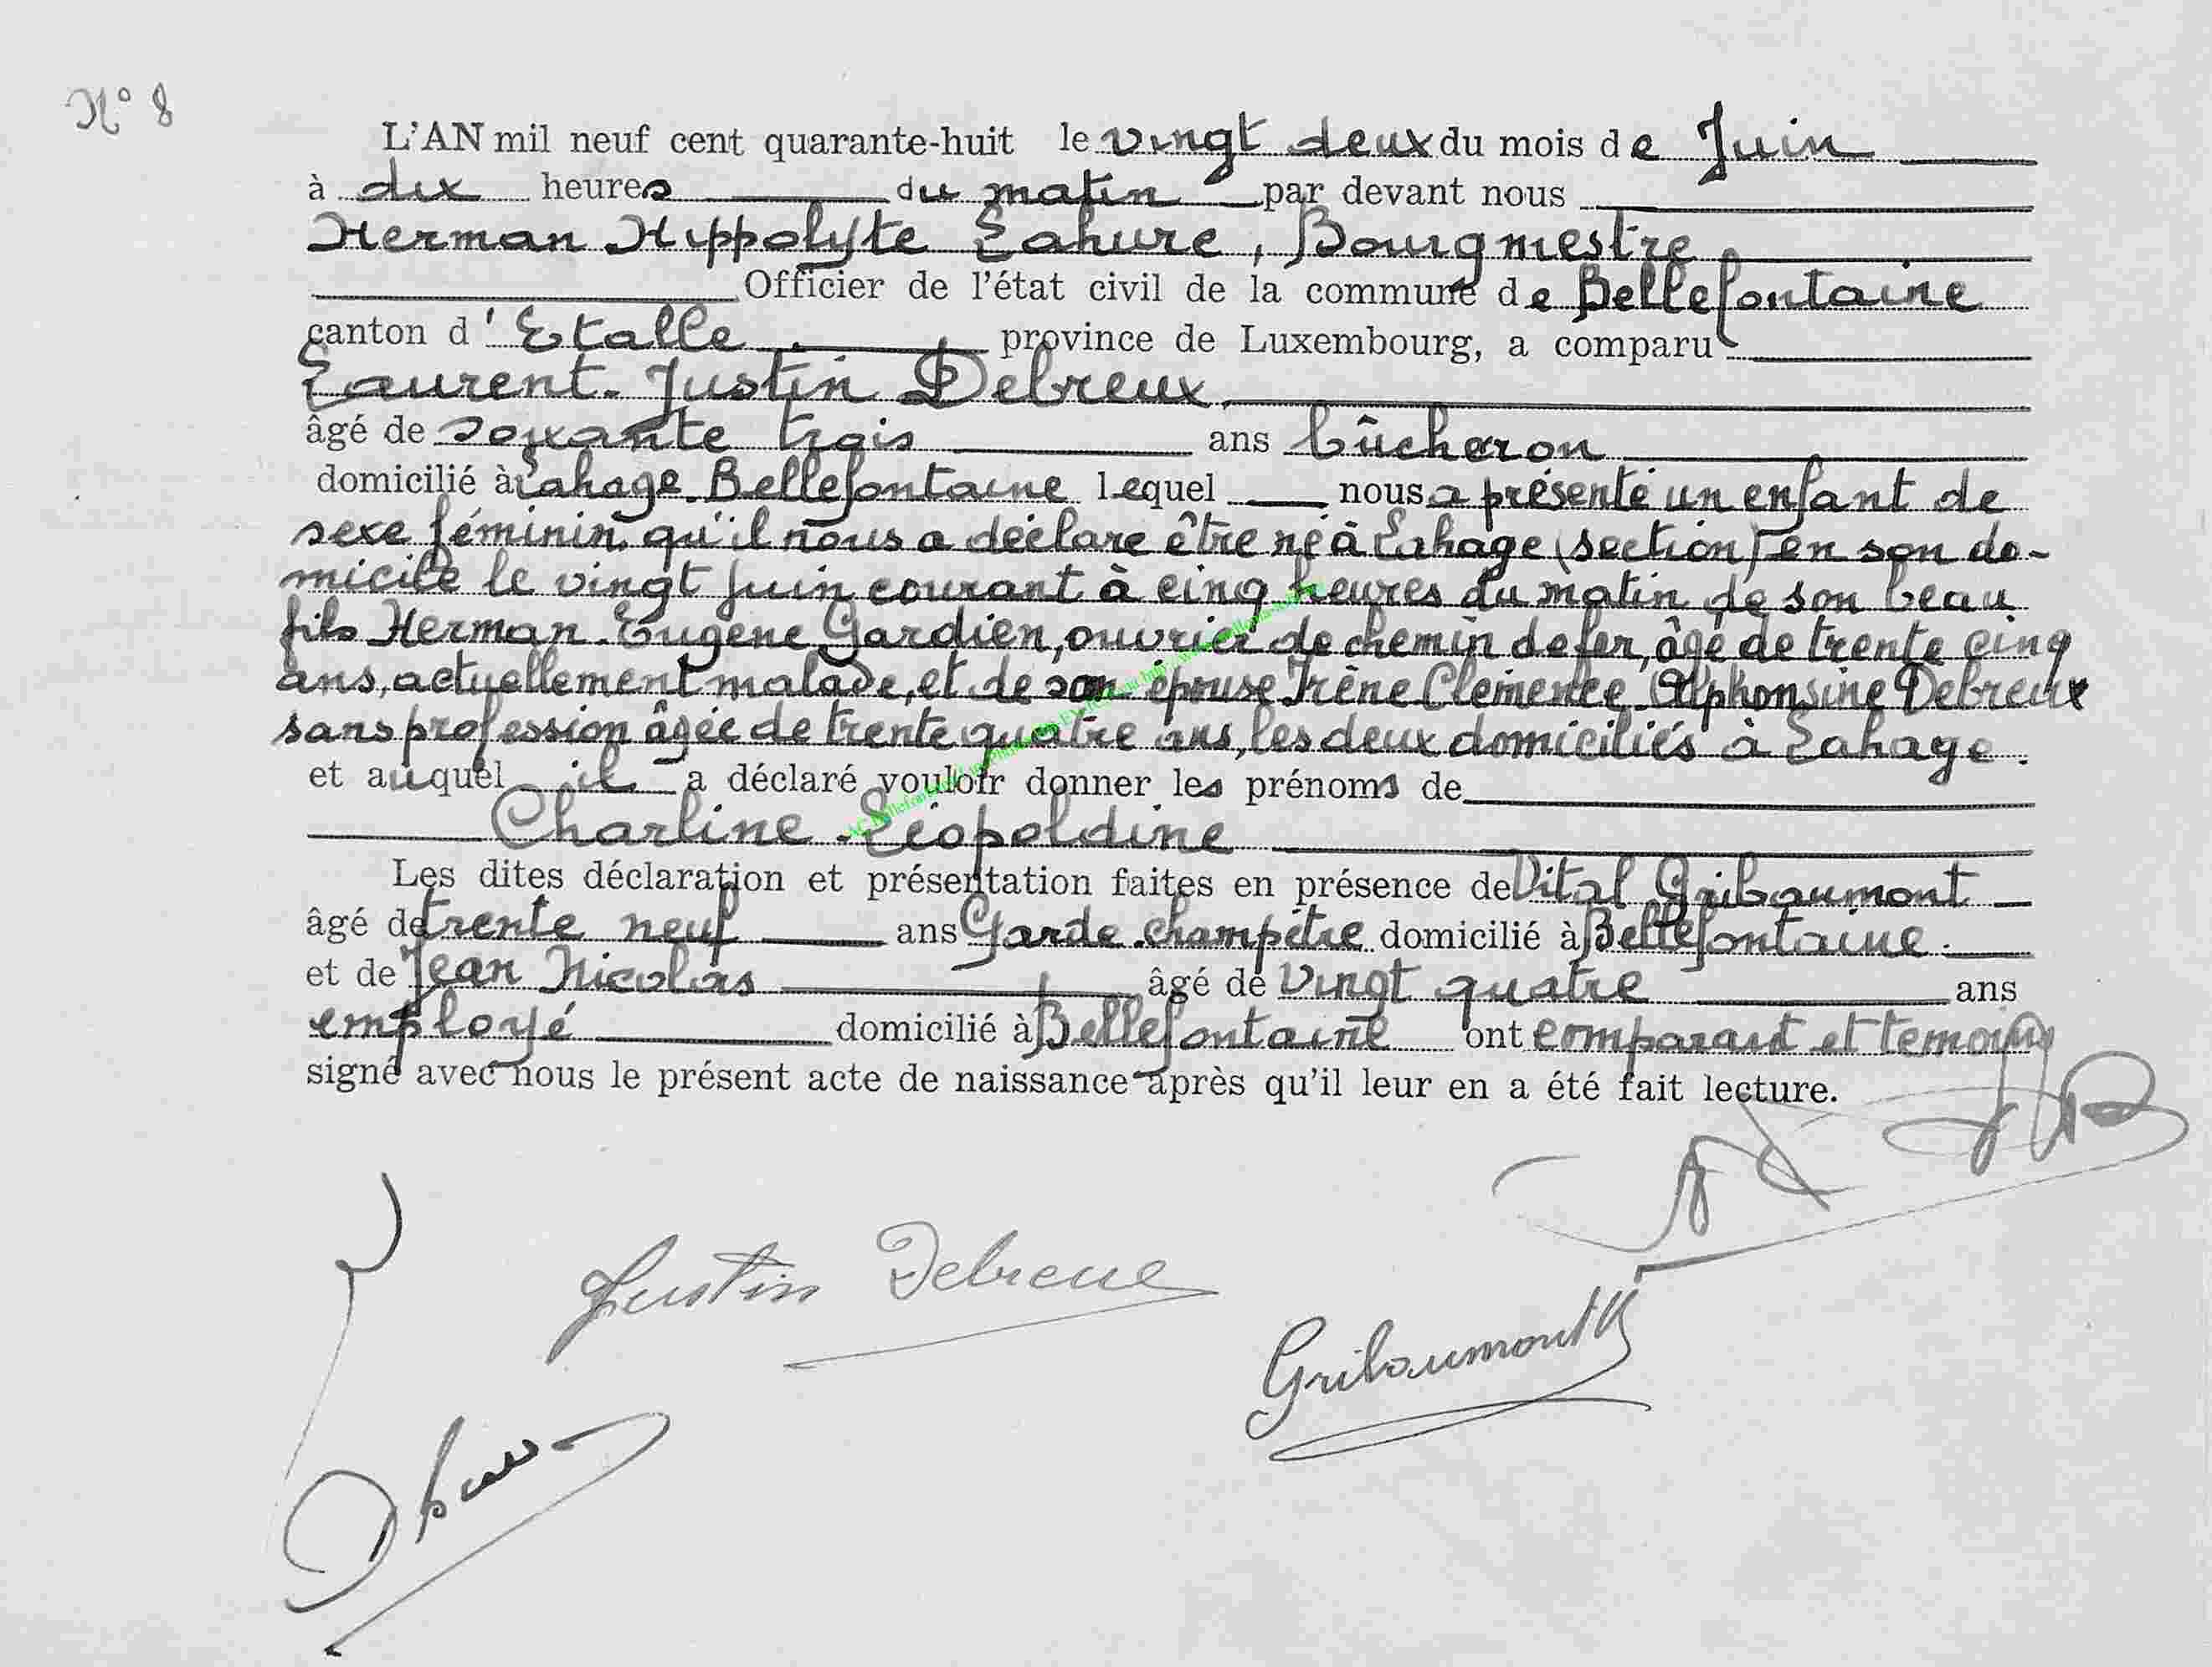 N° 8
L'AN mil neuf cent quarante-huit le vingt deux du mois de Juin
à dix heures du matin par devant nous
Herman Hippolyte Lahure, Bourgmestre
Officier de l'état civil de la commune de Bellefontaine
canton d'Etalle province de Luxembourg, a comparu
Laurent-Justin Debreux
âgé de soixante trois ans bûcheron
domicilié à Lahage-Bellefontaine lequel nous a présenté un enfant de
sexe féminin qu'il nous a déclaré être né à Lahage (section) en son do-
micile le vingt juin courant à cinq heures du matin de son beau
fils Herman-Eugène Gardien, ouvrier de chemin de fer, âgé de trente cinq
ans, actuellement malade, et de son épouse Irène Clémence Alphonsine Debreux
sans profession âgée de trente quatre ans, les deux domiciliés à Lahage.
et auquel il a déclaré vouloir donner les prénoms de
Charline-Léopoldine
Les dites déclaration et présentation faites en présence de Vital Gribaumont
âgé de trente neuf ans Garde-champêtre domicilié à Bellefontaine
et de Jean Nicolas âgé de vingt quatre ans
employé domicilié à Bellefontaine ont comparant et temoins
signé avec nous le présent acte de naissance après qu'il leur en a été fait lecture.
Justin Debreux
Gribaumont